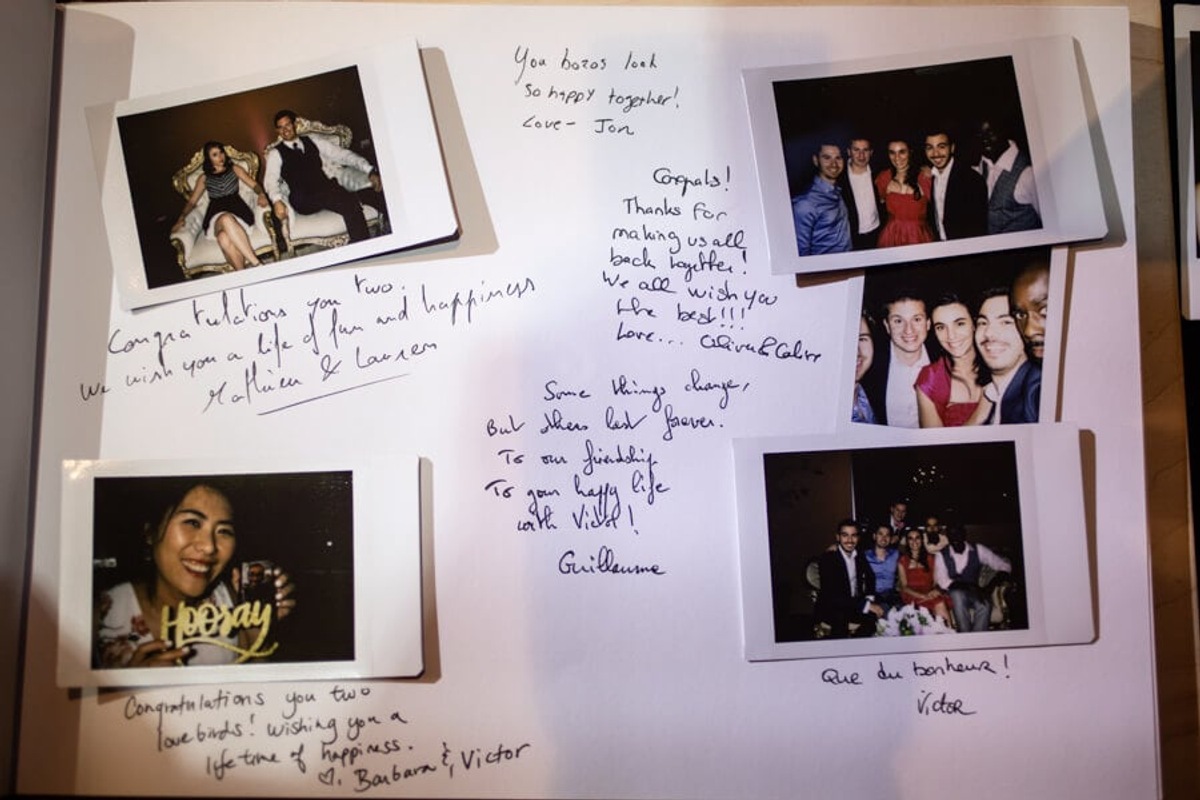 You bozos look
So happy together!
Love - Jon
Congratulations you two.
We wish you a life of fun and happiness
Mathieu & Lauren
Congrats!
Thanks for
making us all
back together!
We all wish you
the best!!!
Love...
Some things change,
But others last forever.
To our friendship
To your happy life
with Victor!
Guillaume
HOORAY
Congratulations you two
lovebirds! Wishing you a
lifetime of happiness.
♡, Barbara & Victor
Que du bonheur!
Victor